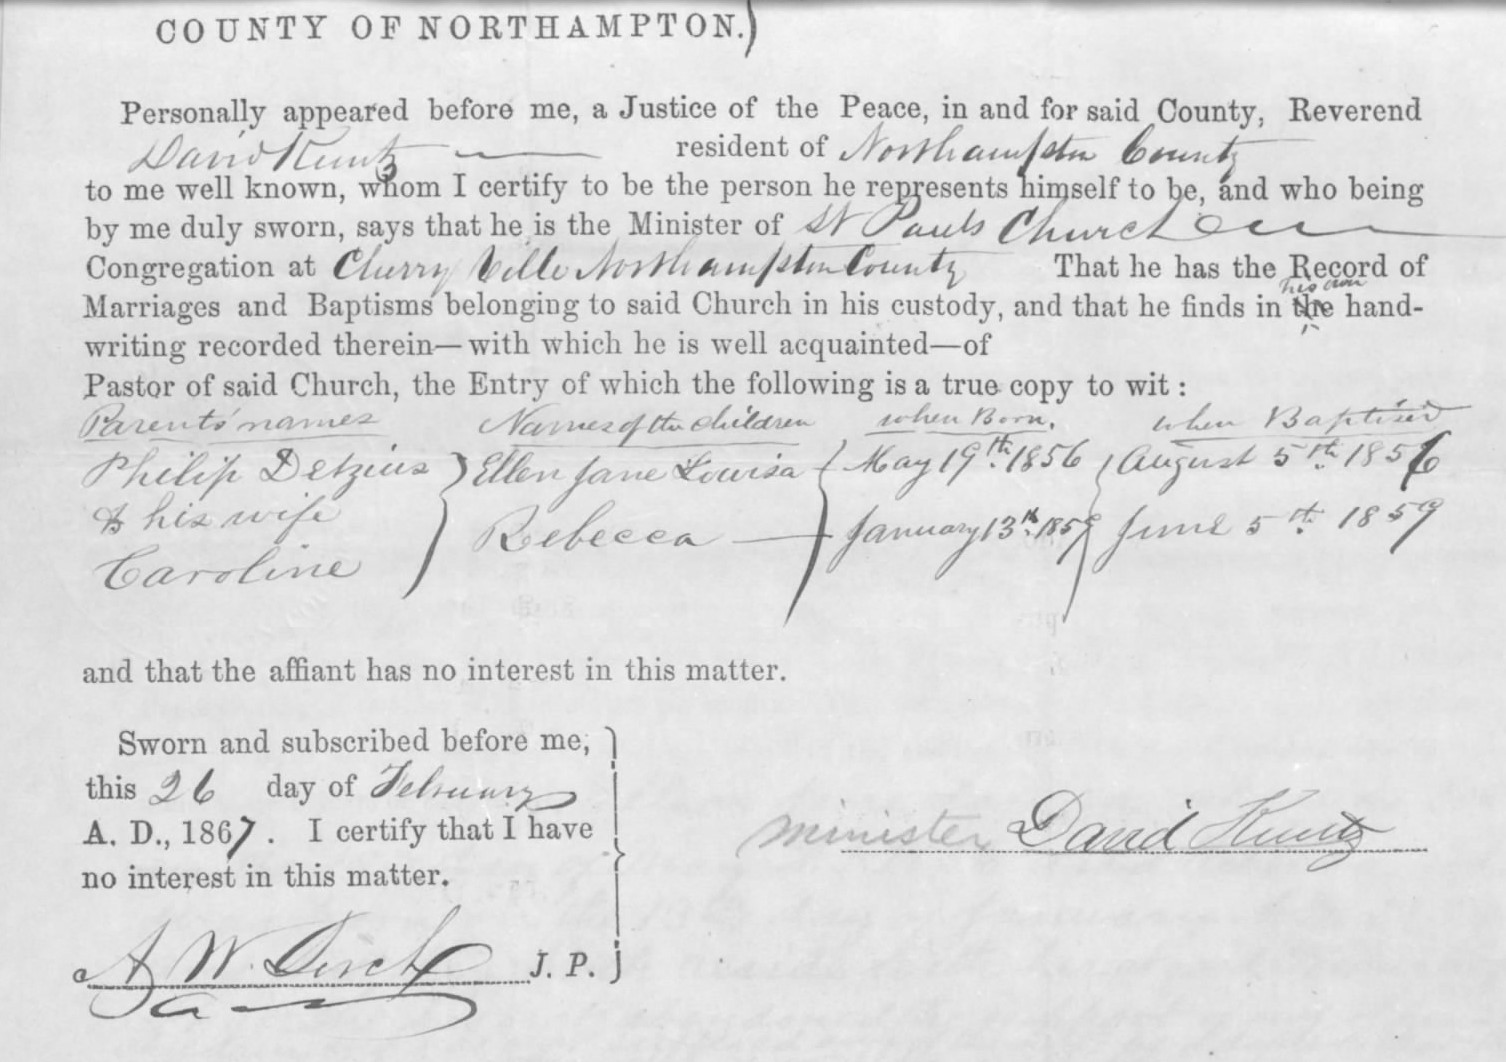 COUNTY OF NORTHAMPTON.)
Personally appeared before me, a Justice of the Peace, in and for said County, Reverend
David Kuntz resident of Northampton County
to me well known, whom I certify to be the person he represents himself to be, and who being
by me duly sworn, says that he is the Minister of St Pauls Church
Congregation at Cherry Ville Northampton County That he has the Record of
his own
Marriages and Baptisms belonging to said Church in his custody, and that he finds in the hand-
writing recorded therein—with which he is well acquainted—of
Pastor of said Church, the Entry of which the following is a true copy to wit:
Parents' names Names of the children when Born. when Baptised
Philip Detzius Ellen Jane Lowisa May 19th 1856 August 5th 1856
& his wife Rebecca January 13th 1859 June 5th 1859
Caroline
and that the affiant has no interest in this matter.
Sworn and subscribed before me,
this 26 day of February
A. D., 1867. I certify that I have
minister David Kuntz
no interest in this matter.
A W. J. P.